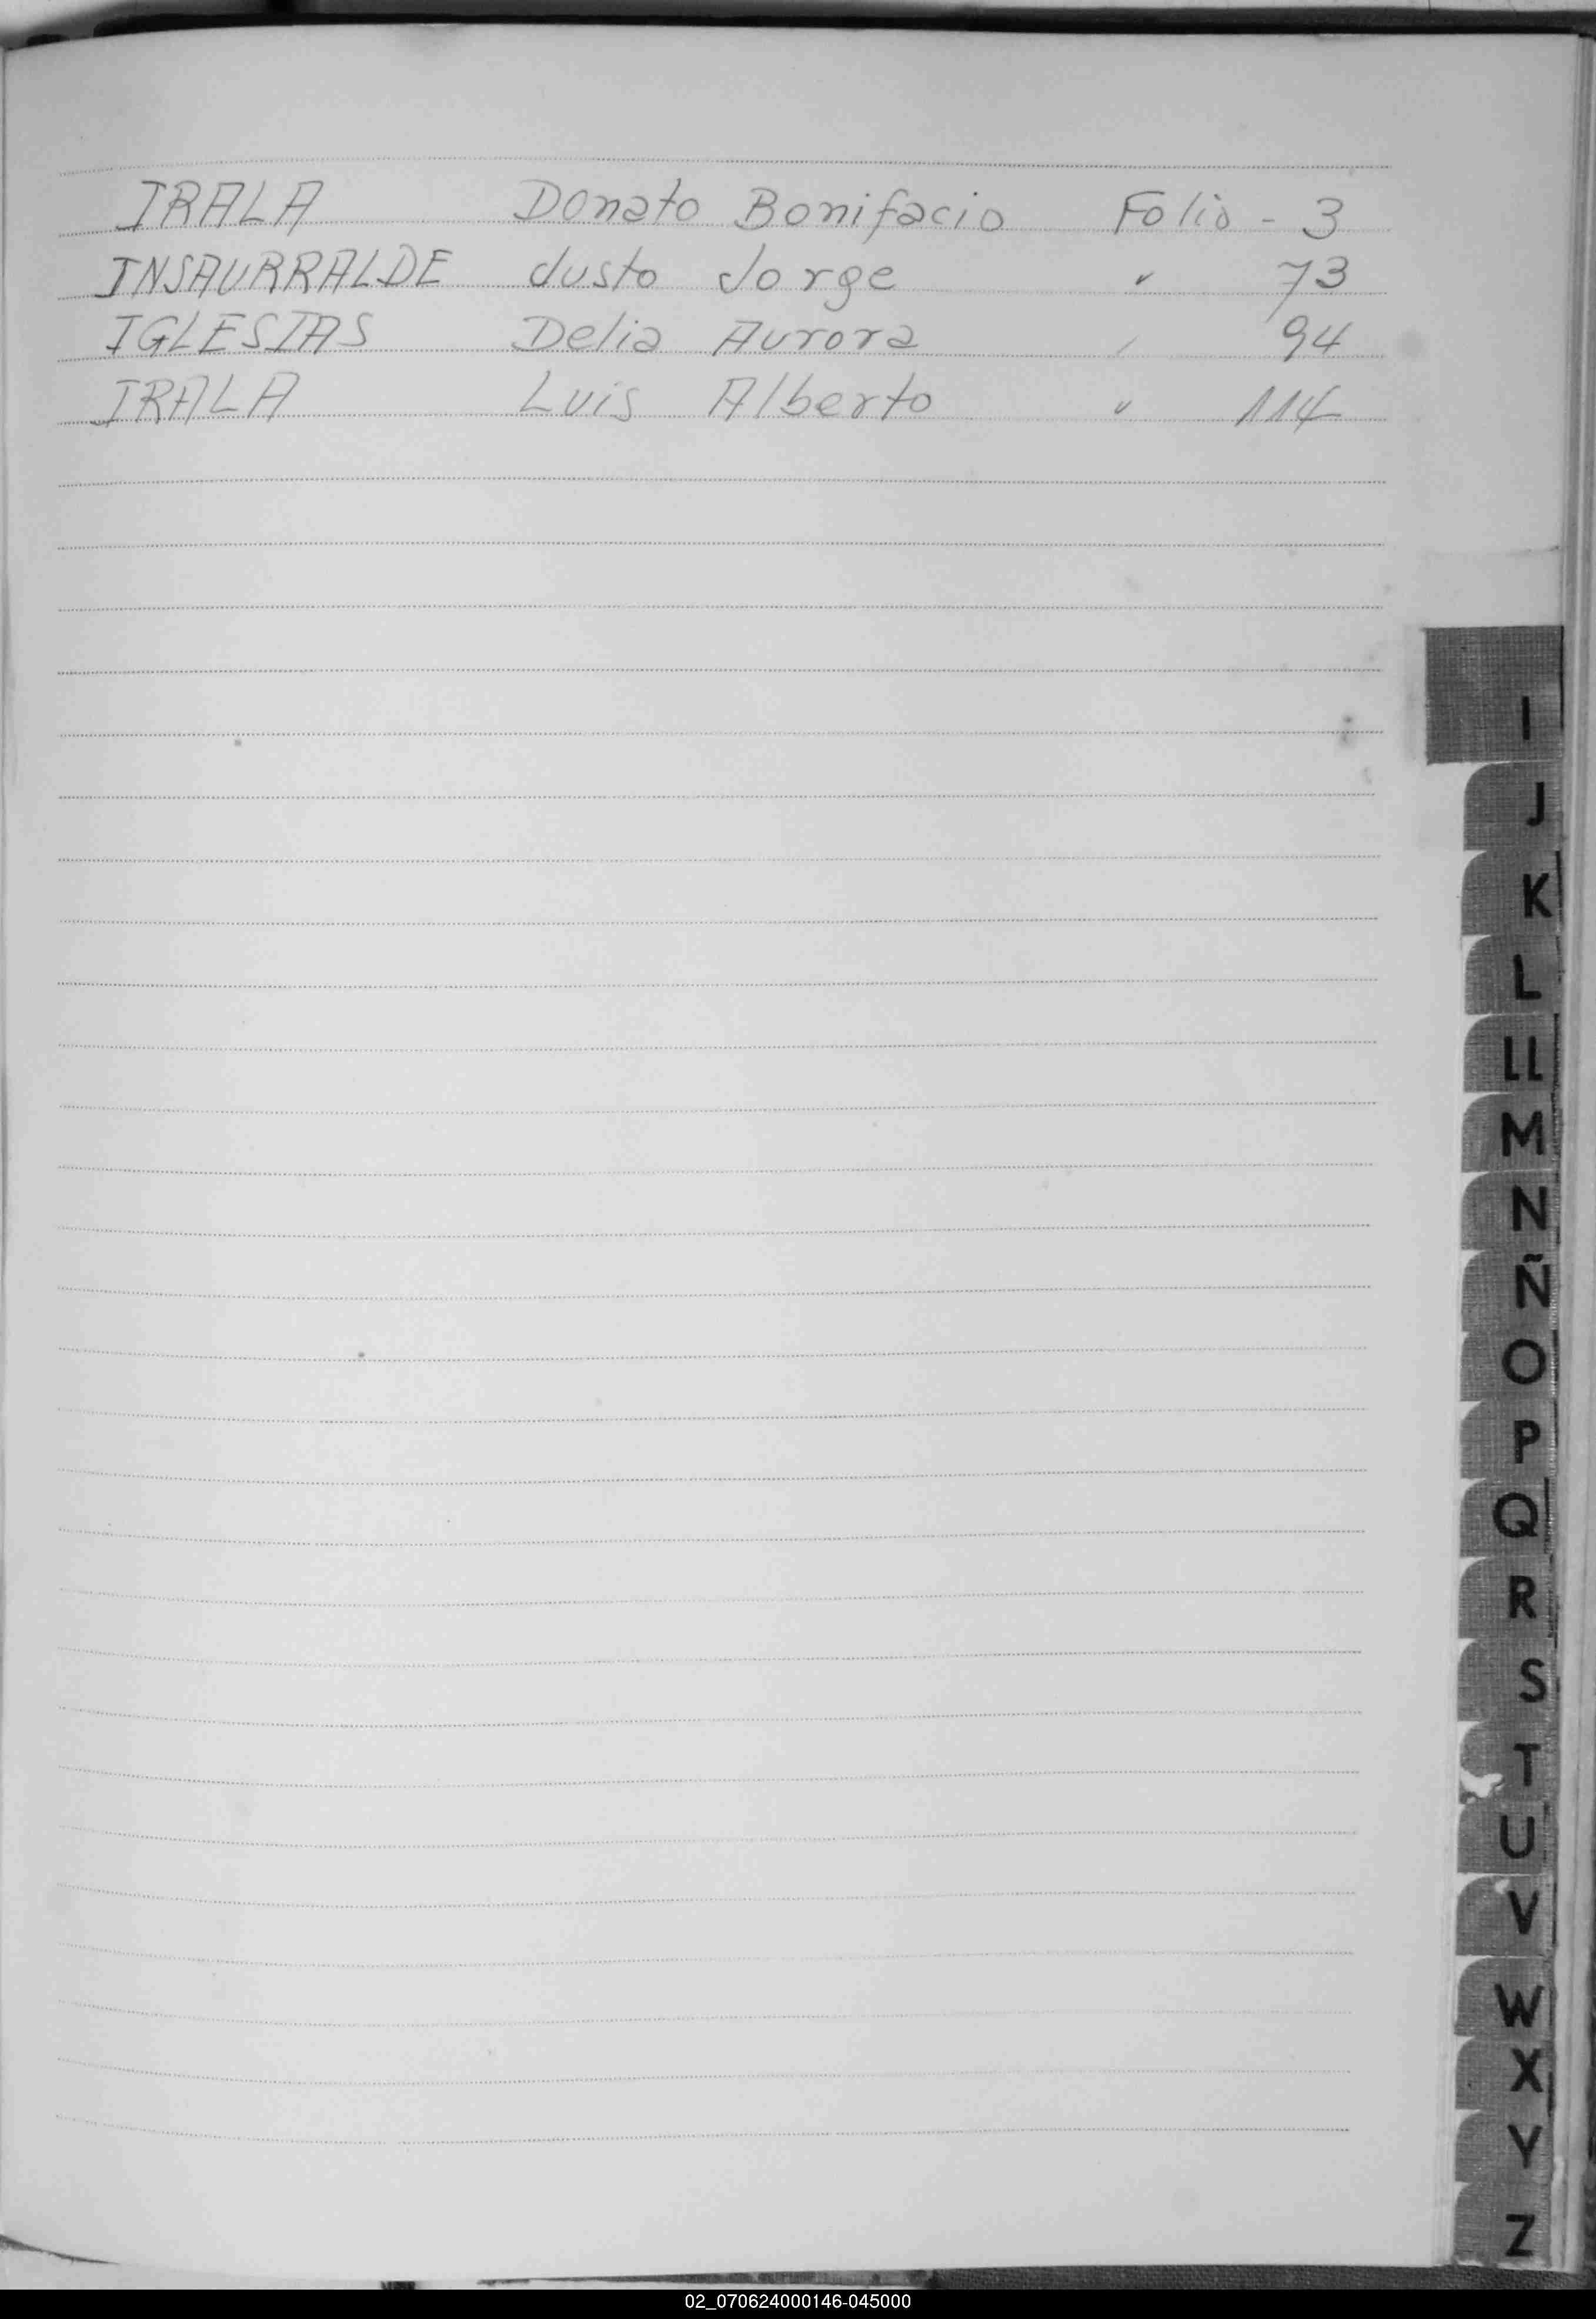 IRALA Donato Bonifacio Folio - 3
INSAURRALDE Justo Jorge " 73
IGLESIAS Delia Aurora " 94
IRALA Luis Alberto " 114
I
J
K
L
LL
M
N
Ñ
O
P
Q
R
S
T
U
V
W
X
Y
Z
02_070624000146-045000